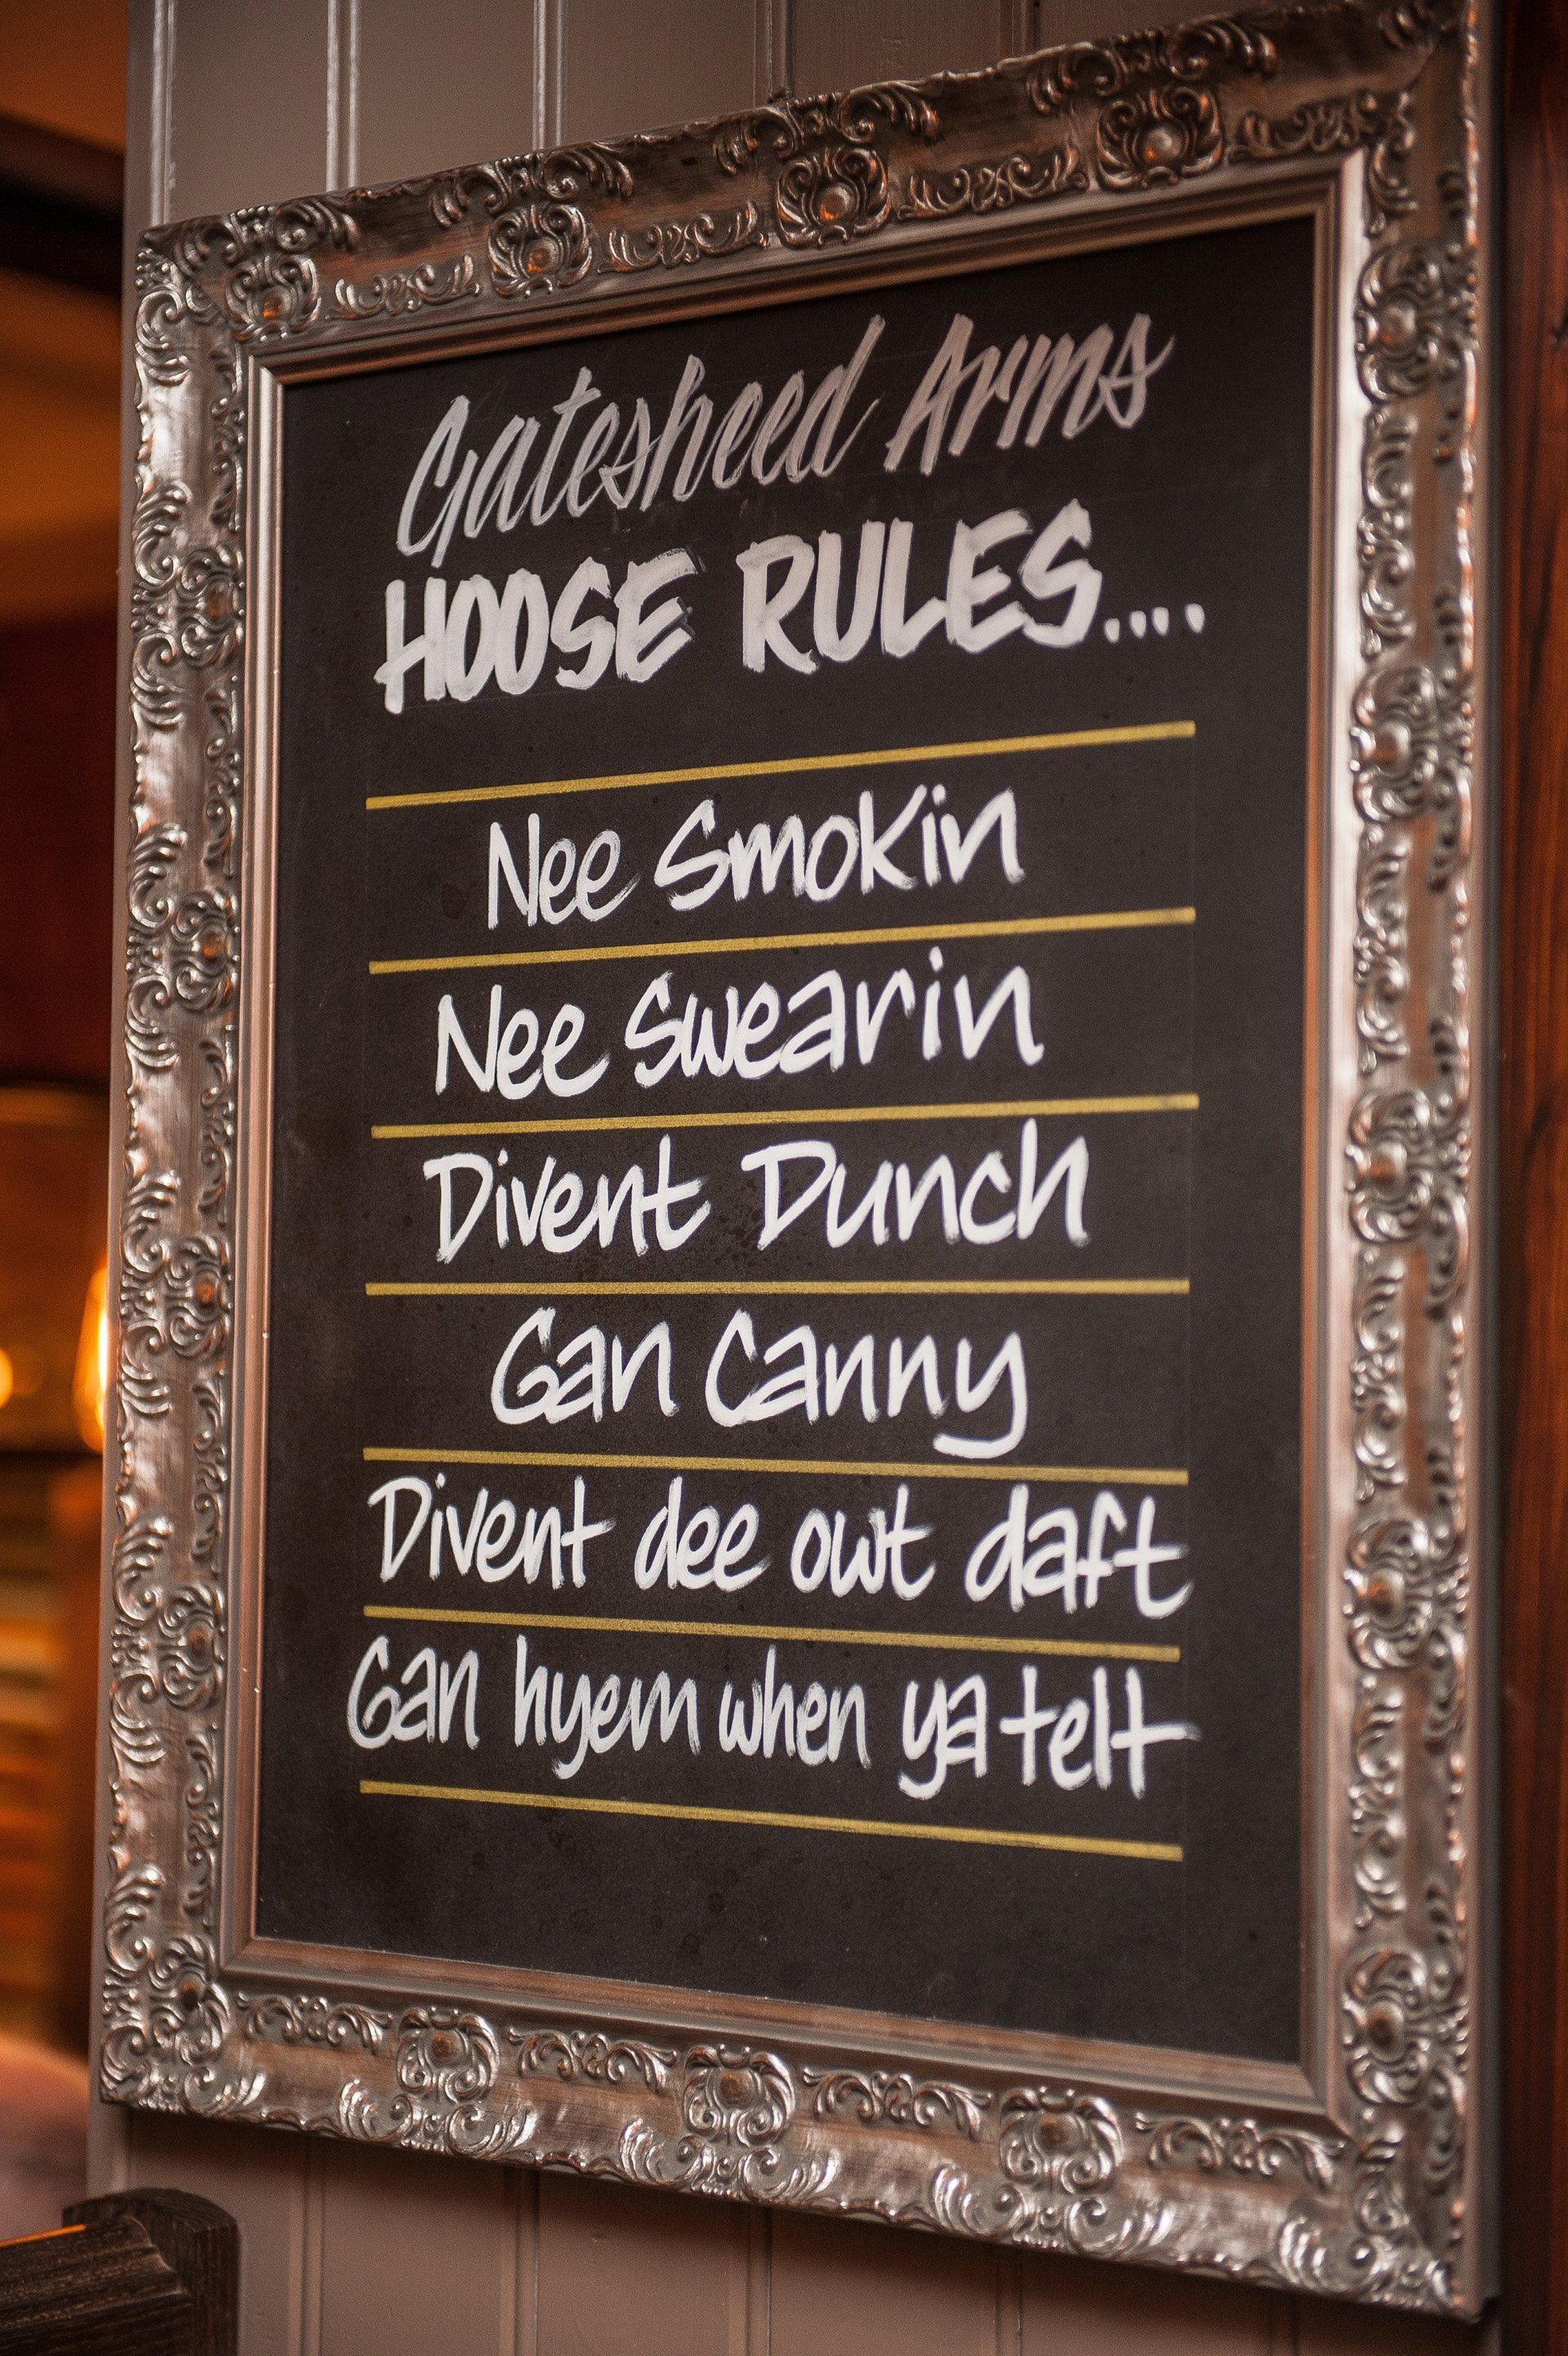 Gatesheed Arms
HOOSE RULES....
Nee Smokin
Nee Swearin
Divent Dunch
Gan Canny
Divent dee owt daft
Gan hyem when ya telt